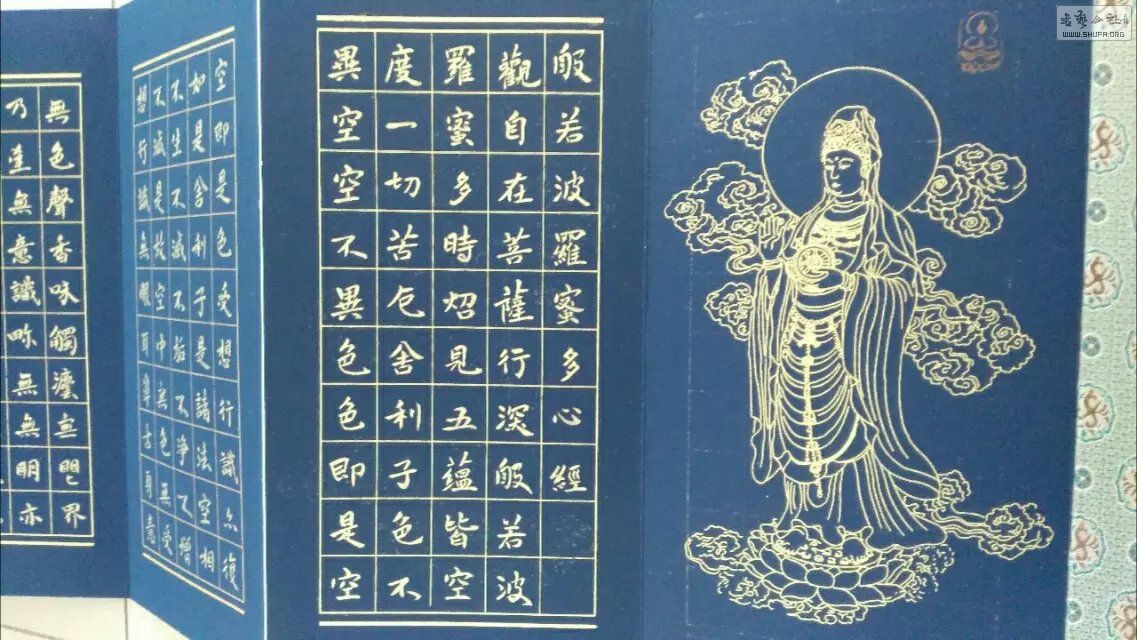 般若波羅蜜多心經
觀自在菩薩行深般若波
羅蜜多時炤見五蘊皆空
度一切苦厄舍利子色不
異空空不異色色即是空
空即是色受想行識亦復
如是舍利子是諸法空相
不生不滅不垢不淨不增
不減是故空中無色無受
想行識無眼耳鼻舌身意
無色聲香味觸灋无眼界
乃至無意識界無無明亦
WWW.SHUFA.ORG